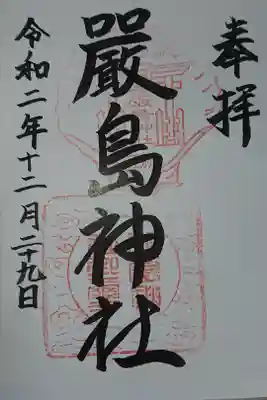 奉拝
嚴島神社
令和二年十二月二十九日